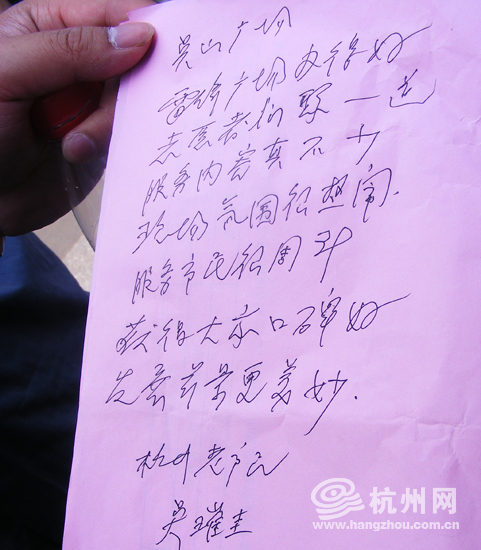 吴山广场
雷锋广场办得好
志愿者们聚一道
服务内容真不少
现场氛围很热闹.
服务市民很周到
获得大家口碑好
发展前景更美妙.
杭州老市民
吴璀圭
杭州网
www.hangzhou.com.cn